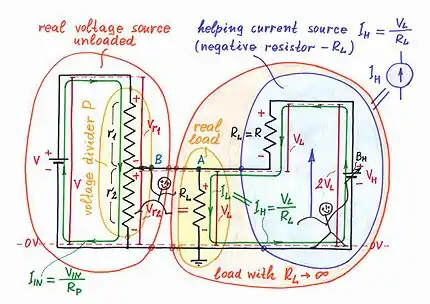 real voltage source
unloaded
helping current source
(negative resistor -RL)
IH = VL/RL
IH
voltage divider P
r1
r2
V
V
Vr1
Vr2
B
A
real
load
RL
RL = R
VL
VL
IL
IH = VL/RL
2VL
BH
VH
0V
0V
IIN = VIN/RP
load with RL → ∞